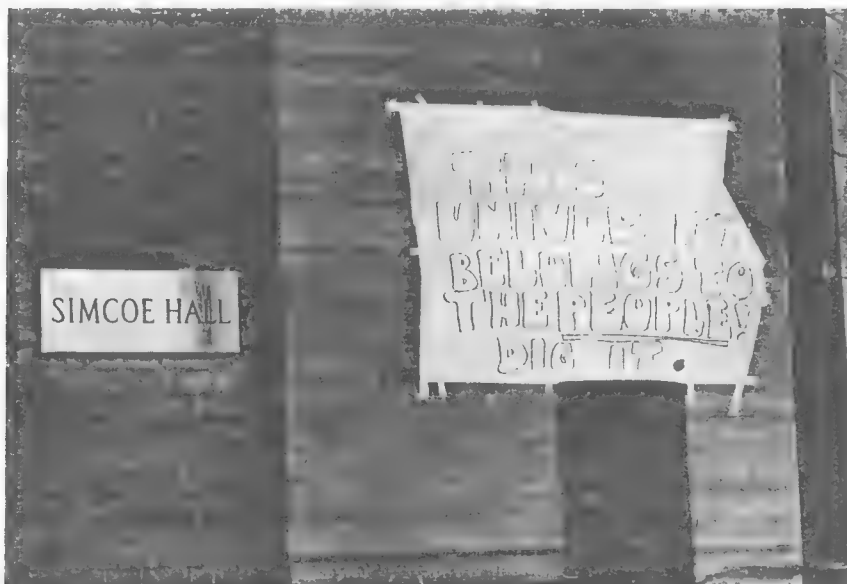 SIMCOE HALL
THIS
UNIVERSITY
BELONGS TO
THE PEOPLE
DIG IT?